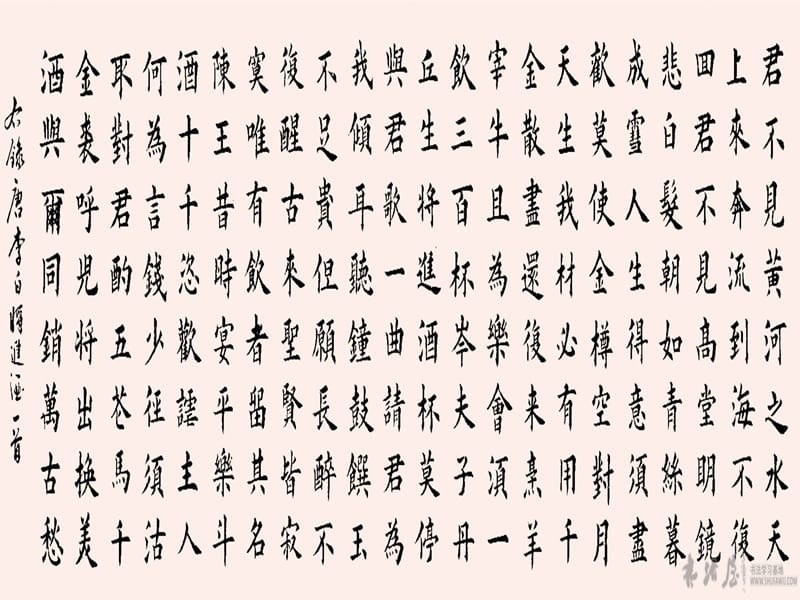 君不見黃河之水天
上來奔流到海不復
回君不見高堂明鏡
悲白髮朝如青絲暮
成雪人生得意須盡
歡莫使金樽空對月
天生我材必有用千
金散盡還復来烹羊
宰牛且為樂會須一
飲三百杯岑夫子丹
丘生將進酒杯莫停
與君歌一曲請君為
我傾耳聽鐘鼓饌玉
不足貴但願長醉不
復醒古來聖賢皆寂
寞唯有飲者留其名
陳王昔時宴平樂斗
酒十千恣歡謔主人
何為言錢少徑須沽
取對君酌五花馬千
金裘呼兒將出換美
酒與爾同銷萬古愁
右錄唐李白將進酒一首
书法屋
书法学习基地
WWW.SHUFAWU.COM